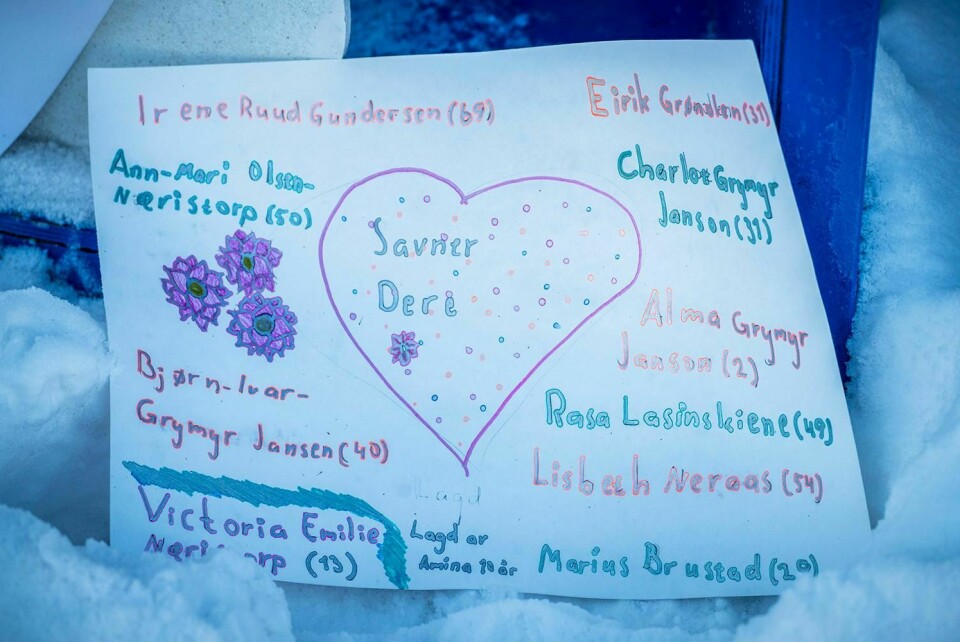 Irene Ruud Gundersen (69)
Ann-Mari Olsen-
Næristorp (50)
Bjørn-Ivar-
Grymyr Jansen (40)
Victoria Emilie
(13)
Savner
Dere
Lagd
Lagd av
Amina 10 år
Eirik (31)
Charlot Grymyr
Janson (31)
Alma Grymyr
Janson (2)
Rasa Lasinskiene (49)
Lisbeth Neraas (54)
Marius Brustad (29)